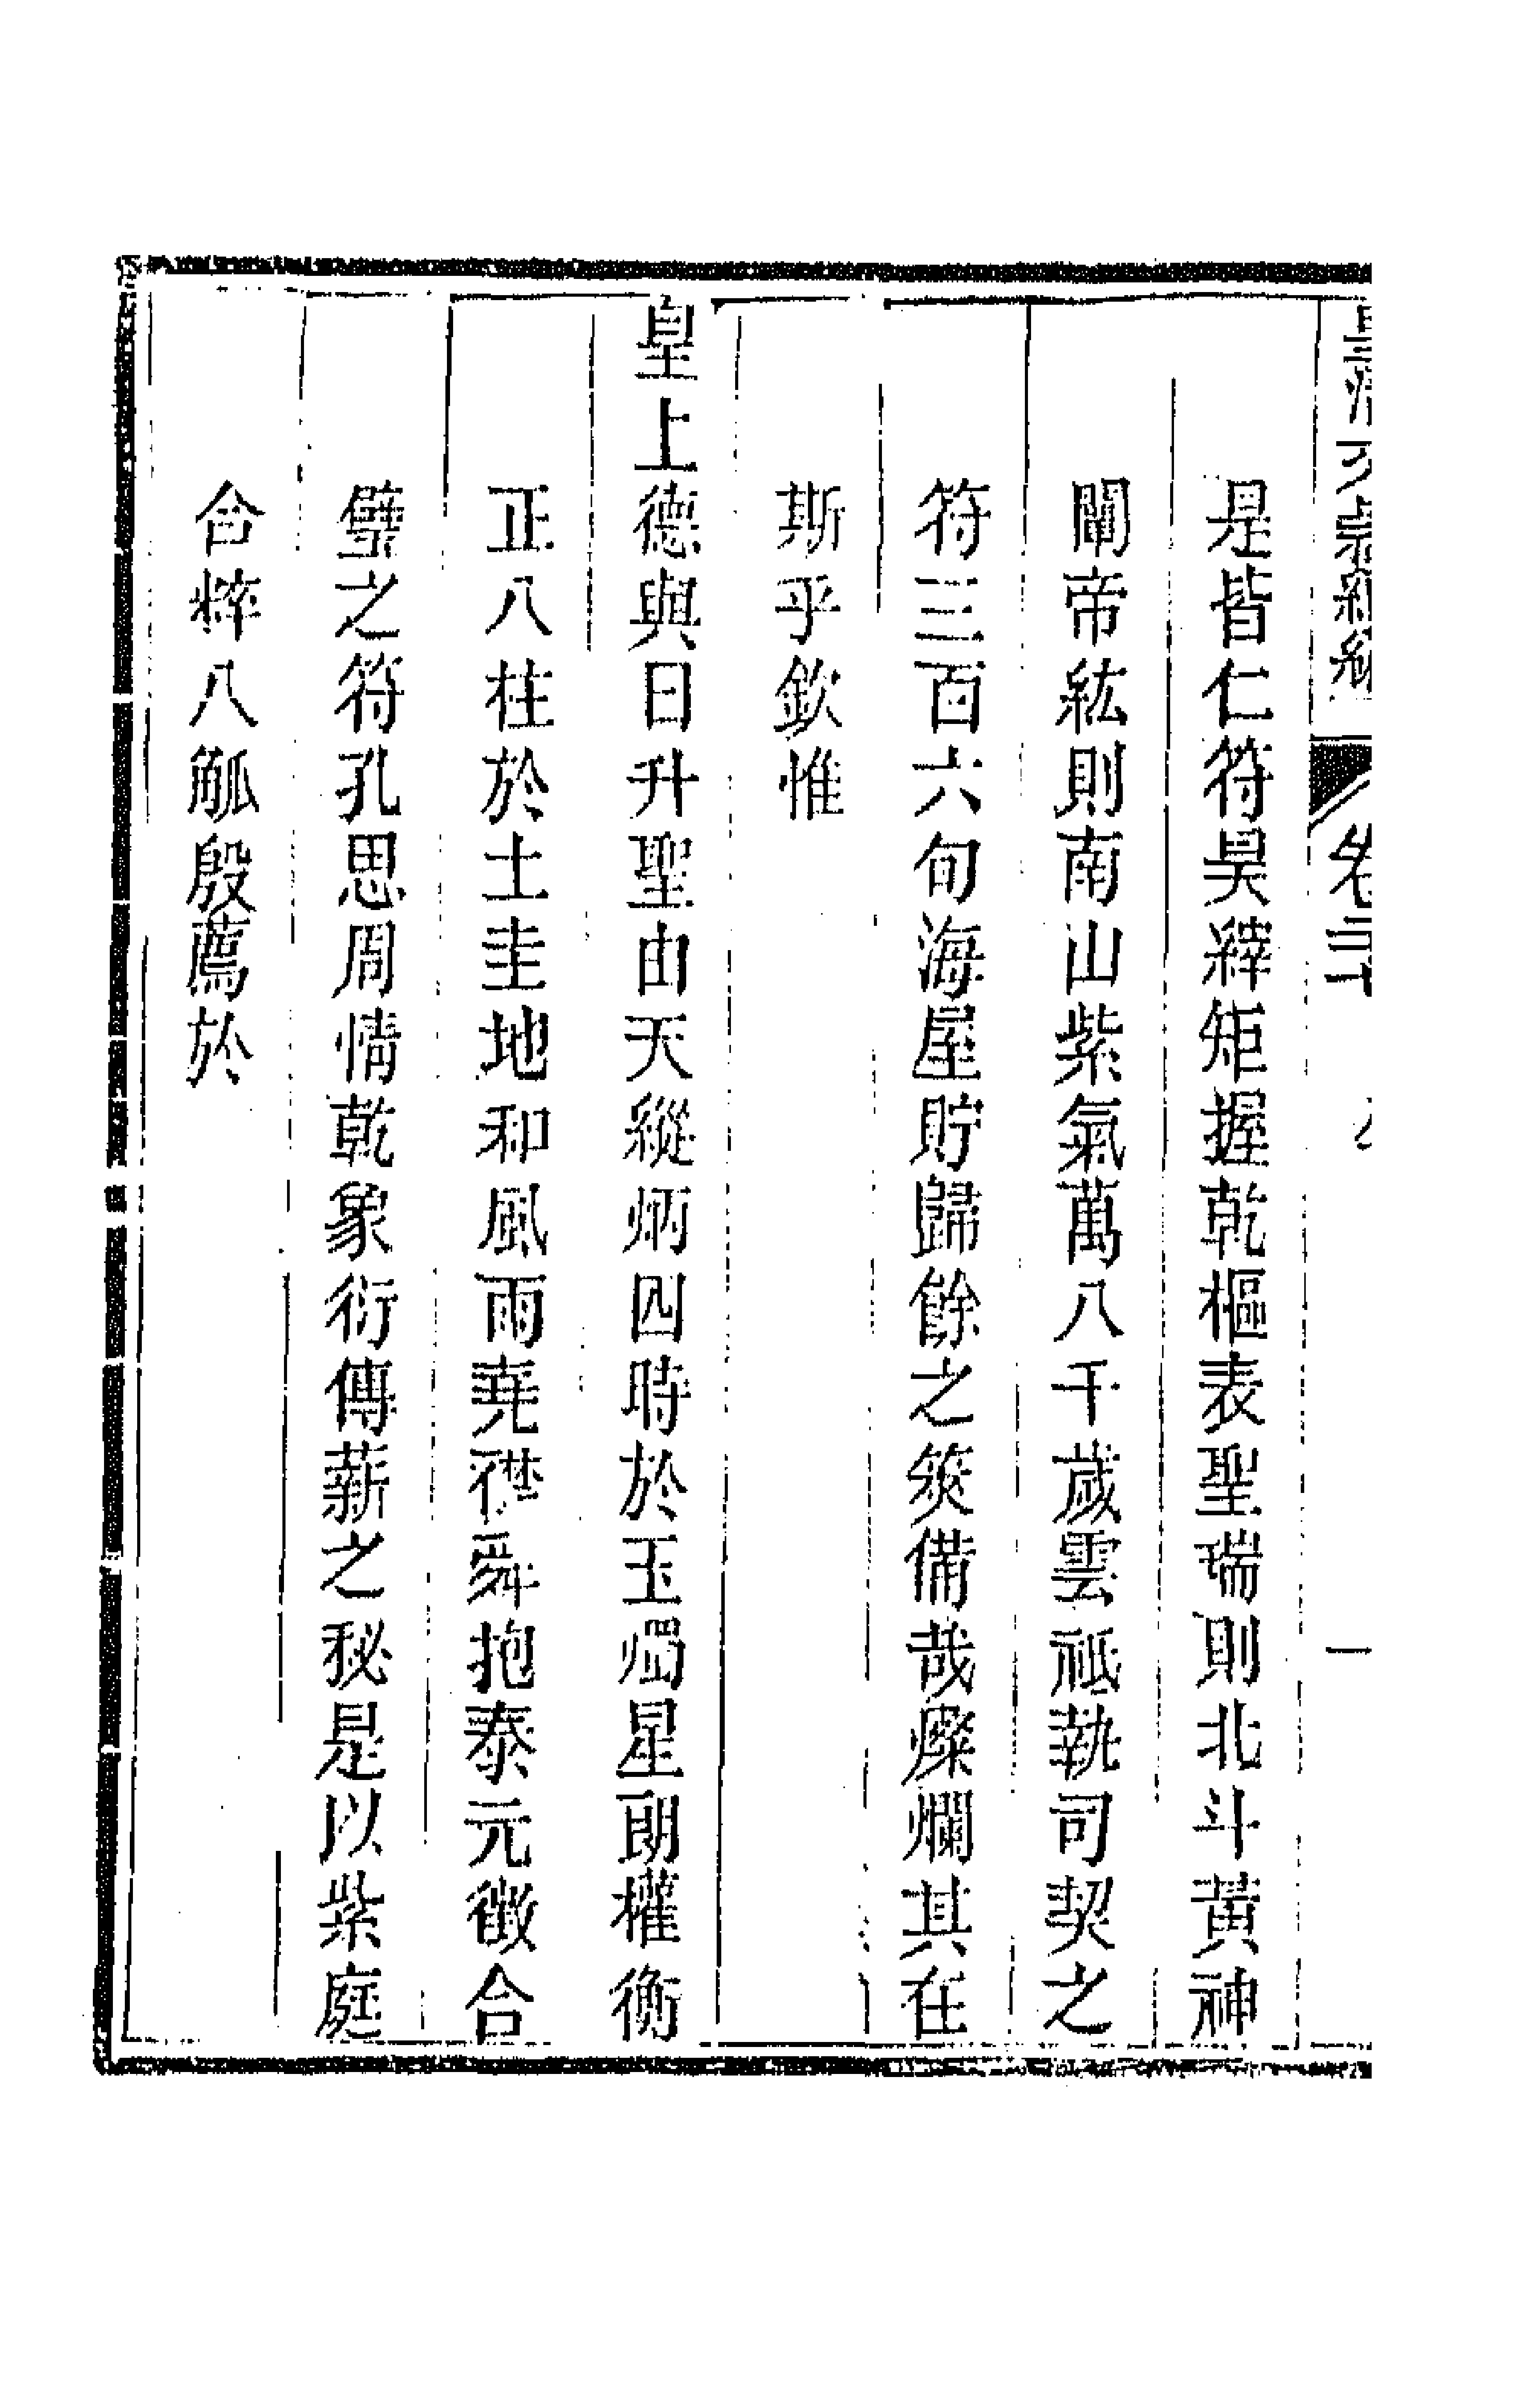 是皆仁符昊繹矩握乾樞表聖瑞則北斗黃神
闡帝紘則南山紫氣萬八千歲雲祗執司契之
符三百六旬海屋貯歸餘之筴備哉燦爛其在
斯乎欽惟
皇上德與日升聖由天縱炳四時於玉燭星朗權衡
正八柱於土圭地和風雨堯襟舜抱泰元徵合
璧之符孔思周情乾象衍傳薪之秘是以紫庭
合粹八觚殷薦於